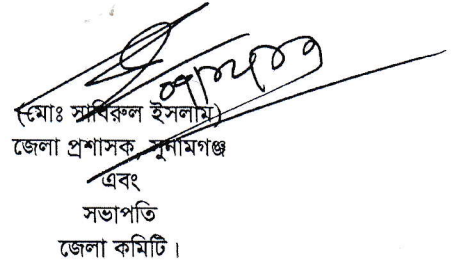 (মোঃ সাবিরুল ইসলাম)
জেলা প্রশাসক, সুনামগঞ্জ
এবং
সভাপতি
জেলা কমিটি।